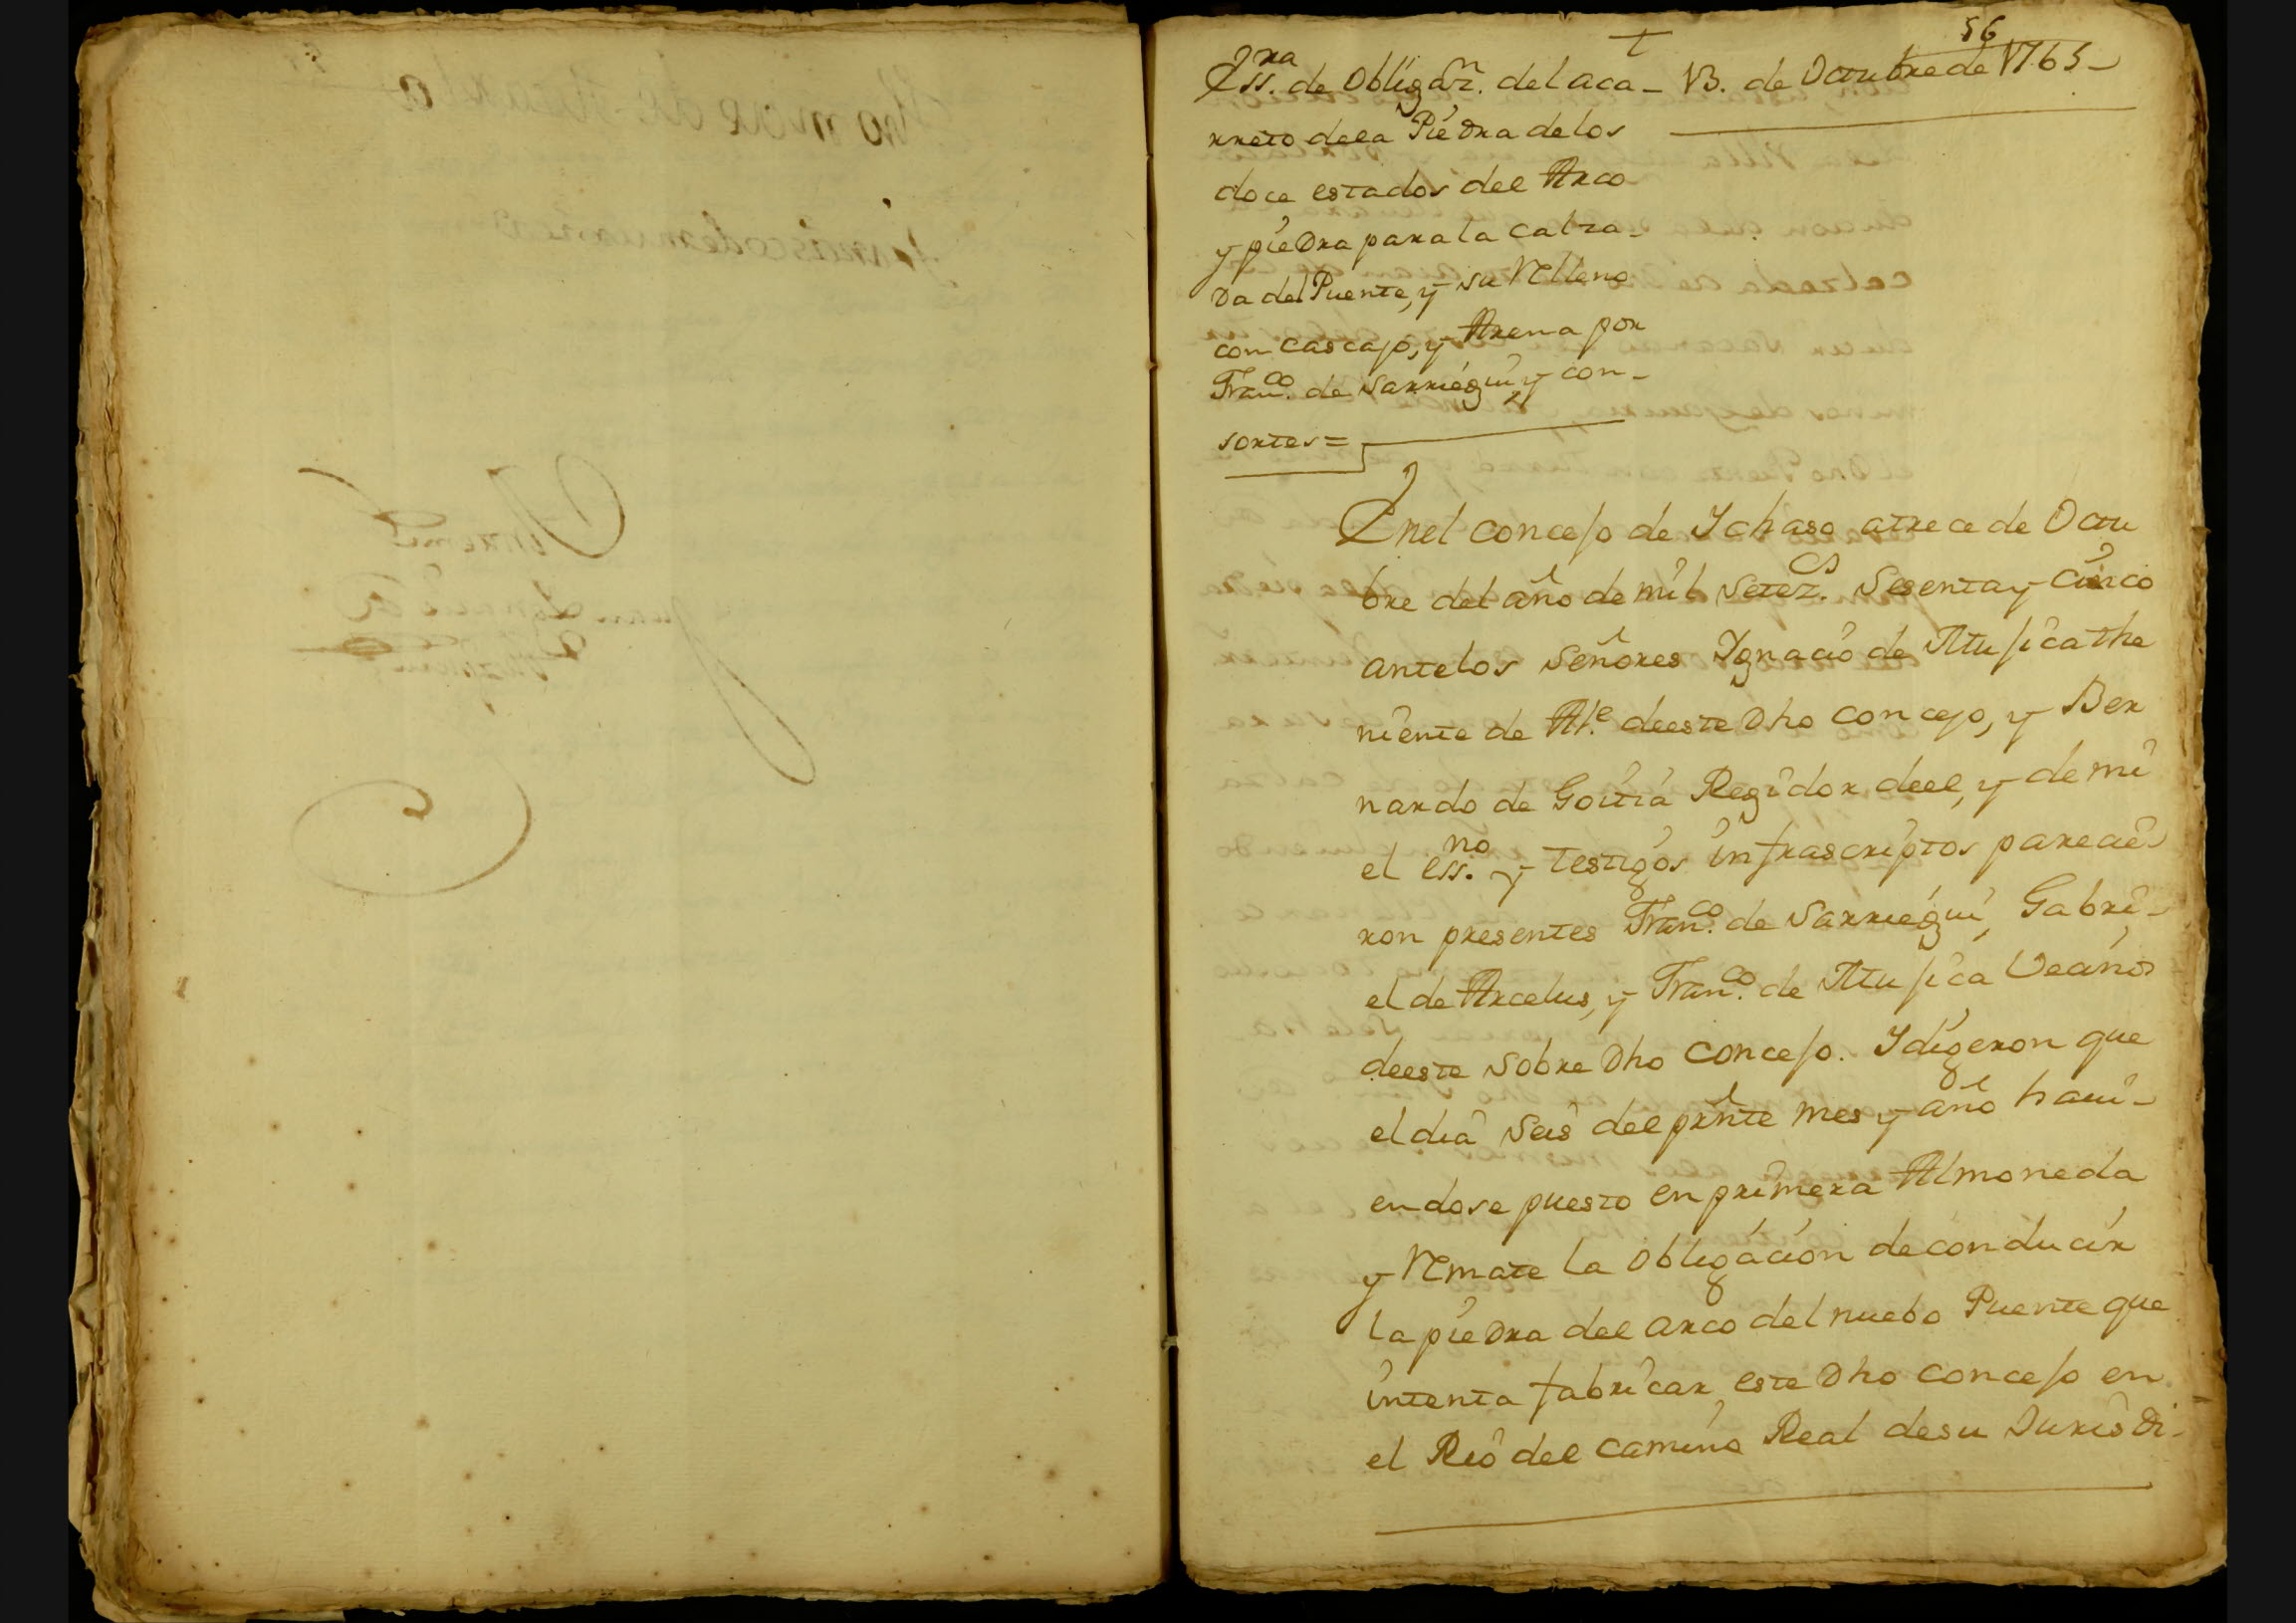 56
Ess.ra de Obligaz.n del aca- 13. de Octubre de 1765-
rreto dela Piedra delos
doce estados del Arco
y piedra para la calza-
da del Puente, y su Relleno
con cascajo, y Arena por
Fran.co de Sarriegui, y con-
sortes=
Enel concejo de Ichaso atrece de Octu
bre del año de mil Setez.cs Sesenta y Cinco
antelos Señores Ignacio de Atujica the
niente de Al.e deeste Dho concejo, y Ber
nardo de Goitia Regidor deel, y de mi
el ess.no y testigos infrascriptos parecie
ron presentes Fran.co de Sarriegui, Gabri-
el de Arcelus, y Fran.co de Atujica Vecinos
deeste sobre Dho concejo. Idigeron que
eldia seis del prñte mes y año havi-
endose puesto en primera Almoneda
y Remate la obligacion deconducir
la piedra del arco del nuebo Puente que
intenta fabricar este Dho concejo en
el Rio del camino Real desu Jurisdi-